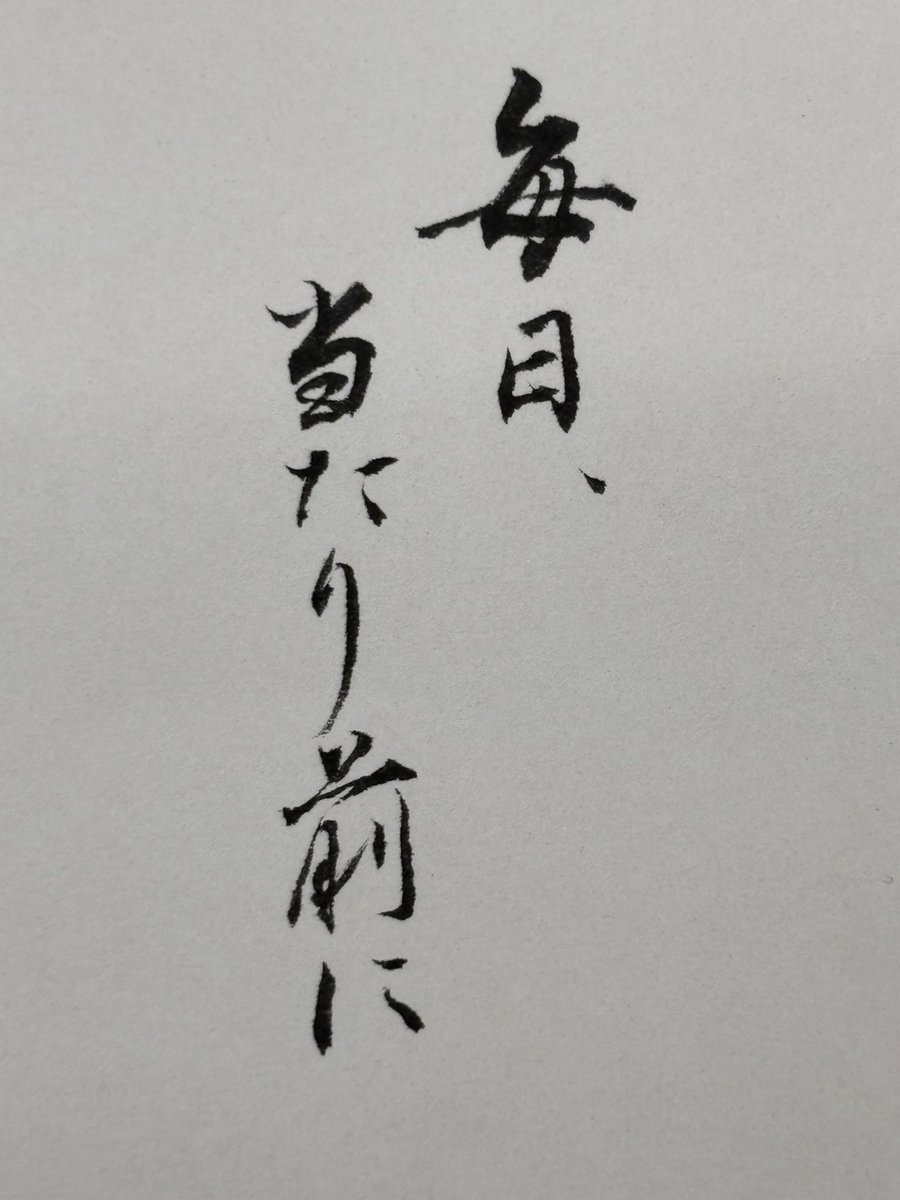 毎日、
当たり前に